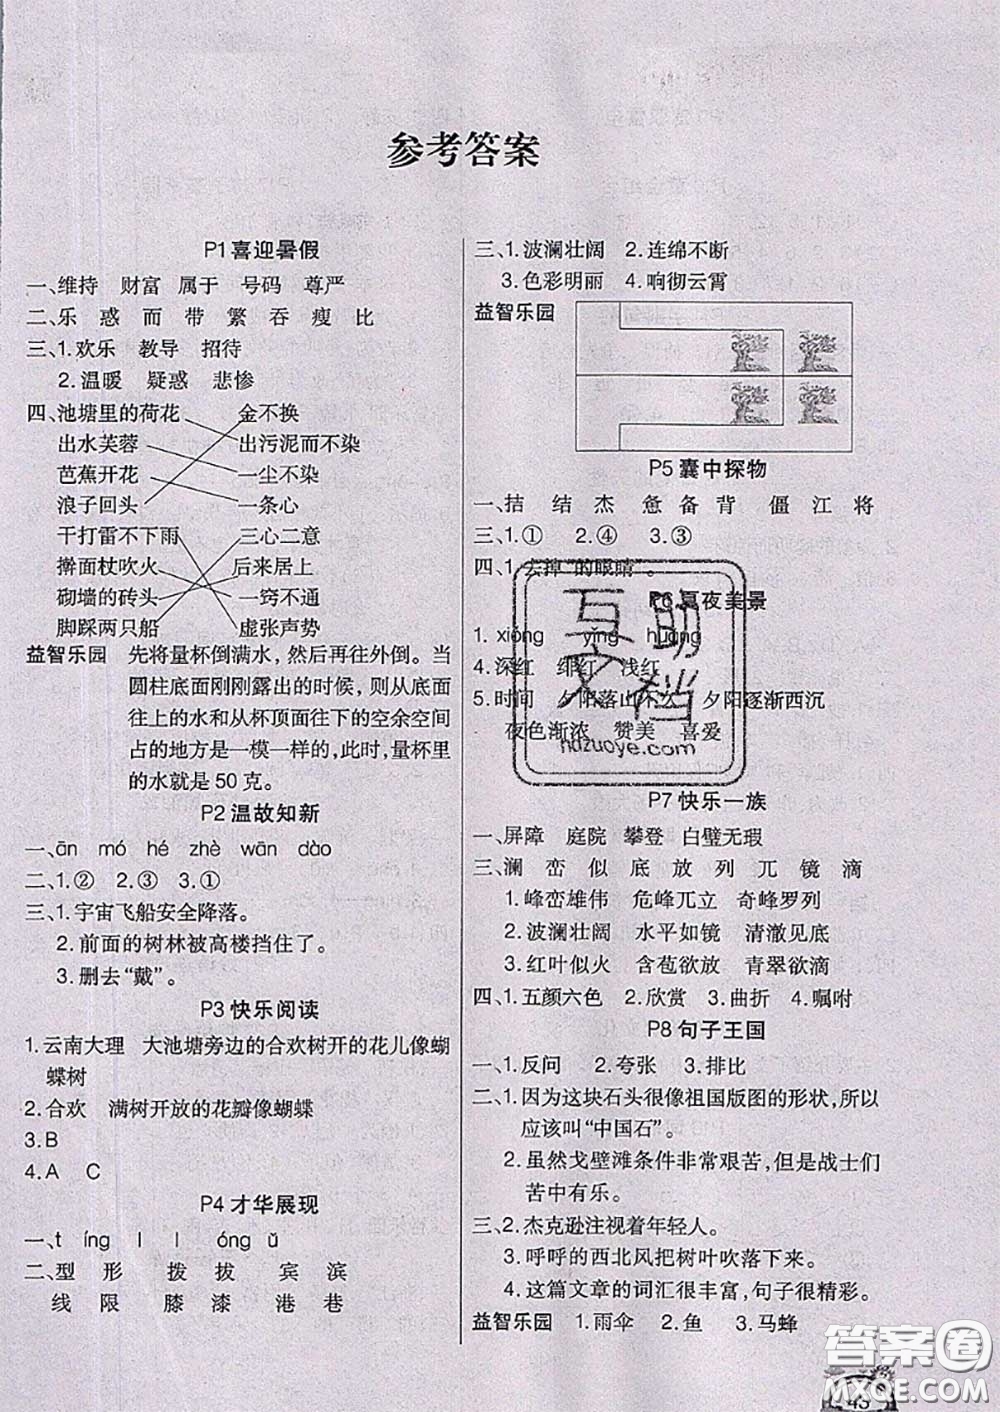 参考答案
P1喜迎暑假
一、维持 财富 属于 号码 尊严
二、乐 惑 而 带 繁 吞 瘦 比
三、1.欢乐 教导 招待
2.温暖 疑惑 悲惨
四、池塘里的荷花 金不换
出水芙蓉 出污泥而不染
芭蕉开花 一尘不染
浪子回头 一条心
干打雷不下雨 三心二意
擀面杖吹火 后来居上
砌墙的砖头 一窍不通
脚踩两只船 虚张声势
益智乐园 先将量杯倒满水，然后再往外倒。当
圆柱底面刚刚露出的时候，则从底面
往上的水和从杯顶面往下的空余空间
占的地方是一模一样的，此时，量杯里
的水就是50克。
P2温故知新
一、ān mó hé zhè wān dào
二、1.② 2.③ 3.①
三、1.宇宙飞船安全降落。
2.前面的树林被高楼挡住了。
3.删去“戴”。
P3快乐阅读
1.云南大理 大池塘旁边的合欢树开的花儿像蝴
蝶树
2.合欢 满树开放的花瓣像蝴蝶
3.B
4.A C
P4才华展现
一、t íng l l óng ǔ
二、型 形 拨 拔 宾 滨
线 限 膝 漆 港 巷
三、1.波澜壮阔 2.连绵不断
3.色彩明丽 4.响彻云霄
益智乐园
P5囊中探物
一、拮 结 杰 惫 备 背 僵 江 将
三、1.① 2.④ 3.③
四、1.去掉“的眼睛”。
P6夏夜美景
1.xiōng yǐng huǎng
4.深红 绯红 浅红
5.时间 夕阳落山不久 夕阳逐渐西沉
夜色渐浓 赞美 喜爱
P7快乐一族
一、屏障 庭院 攀登 白璧无瑕
三、澜 峦 似 底 放 列 兀 镜 滴
1.峰峦雄伟 危峰兀立 奇峰罗列
2.波澜壮阔 水平如镜 清澈见底
3.红叶似火 含苞欲放 青翠欲滴
四、1.五颜六色 2.欣赏 3.曲折 4.嘱咐
P8句子王国
一、1.反问 2.夸张 3.排比
二、1.因为这块石头很像祖国版图的形状，所以
应该叫“中国石”。
2.虽然戈壁滩条件非常艰苦，但是战士们
苦中有乐。
三、2.杰克逊注视着年轻人。
3.呼呼的西北风把树叶吹落下来。
4.这篇文章的词汇很丰富，句子很精彩。
益智乐园 1.雨伞 2.鱼 3.马蜂
互助
文档
hdzuoye.com
答案圈
MXQE.COM
45